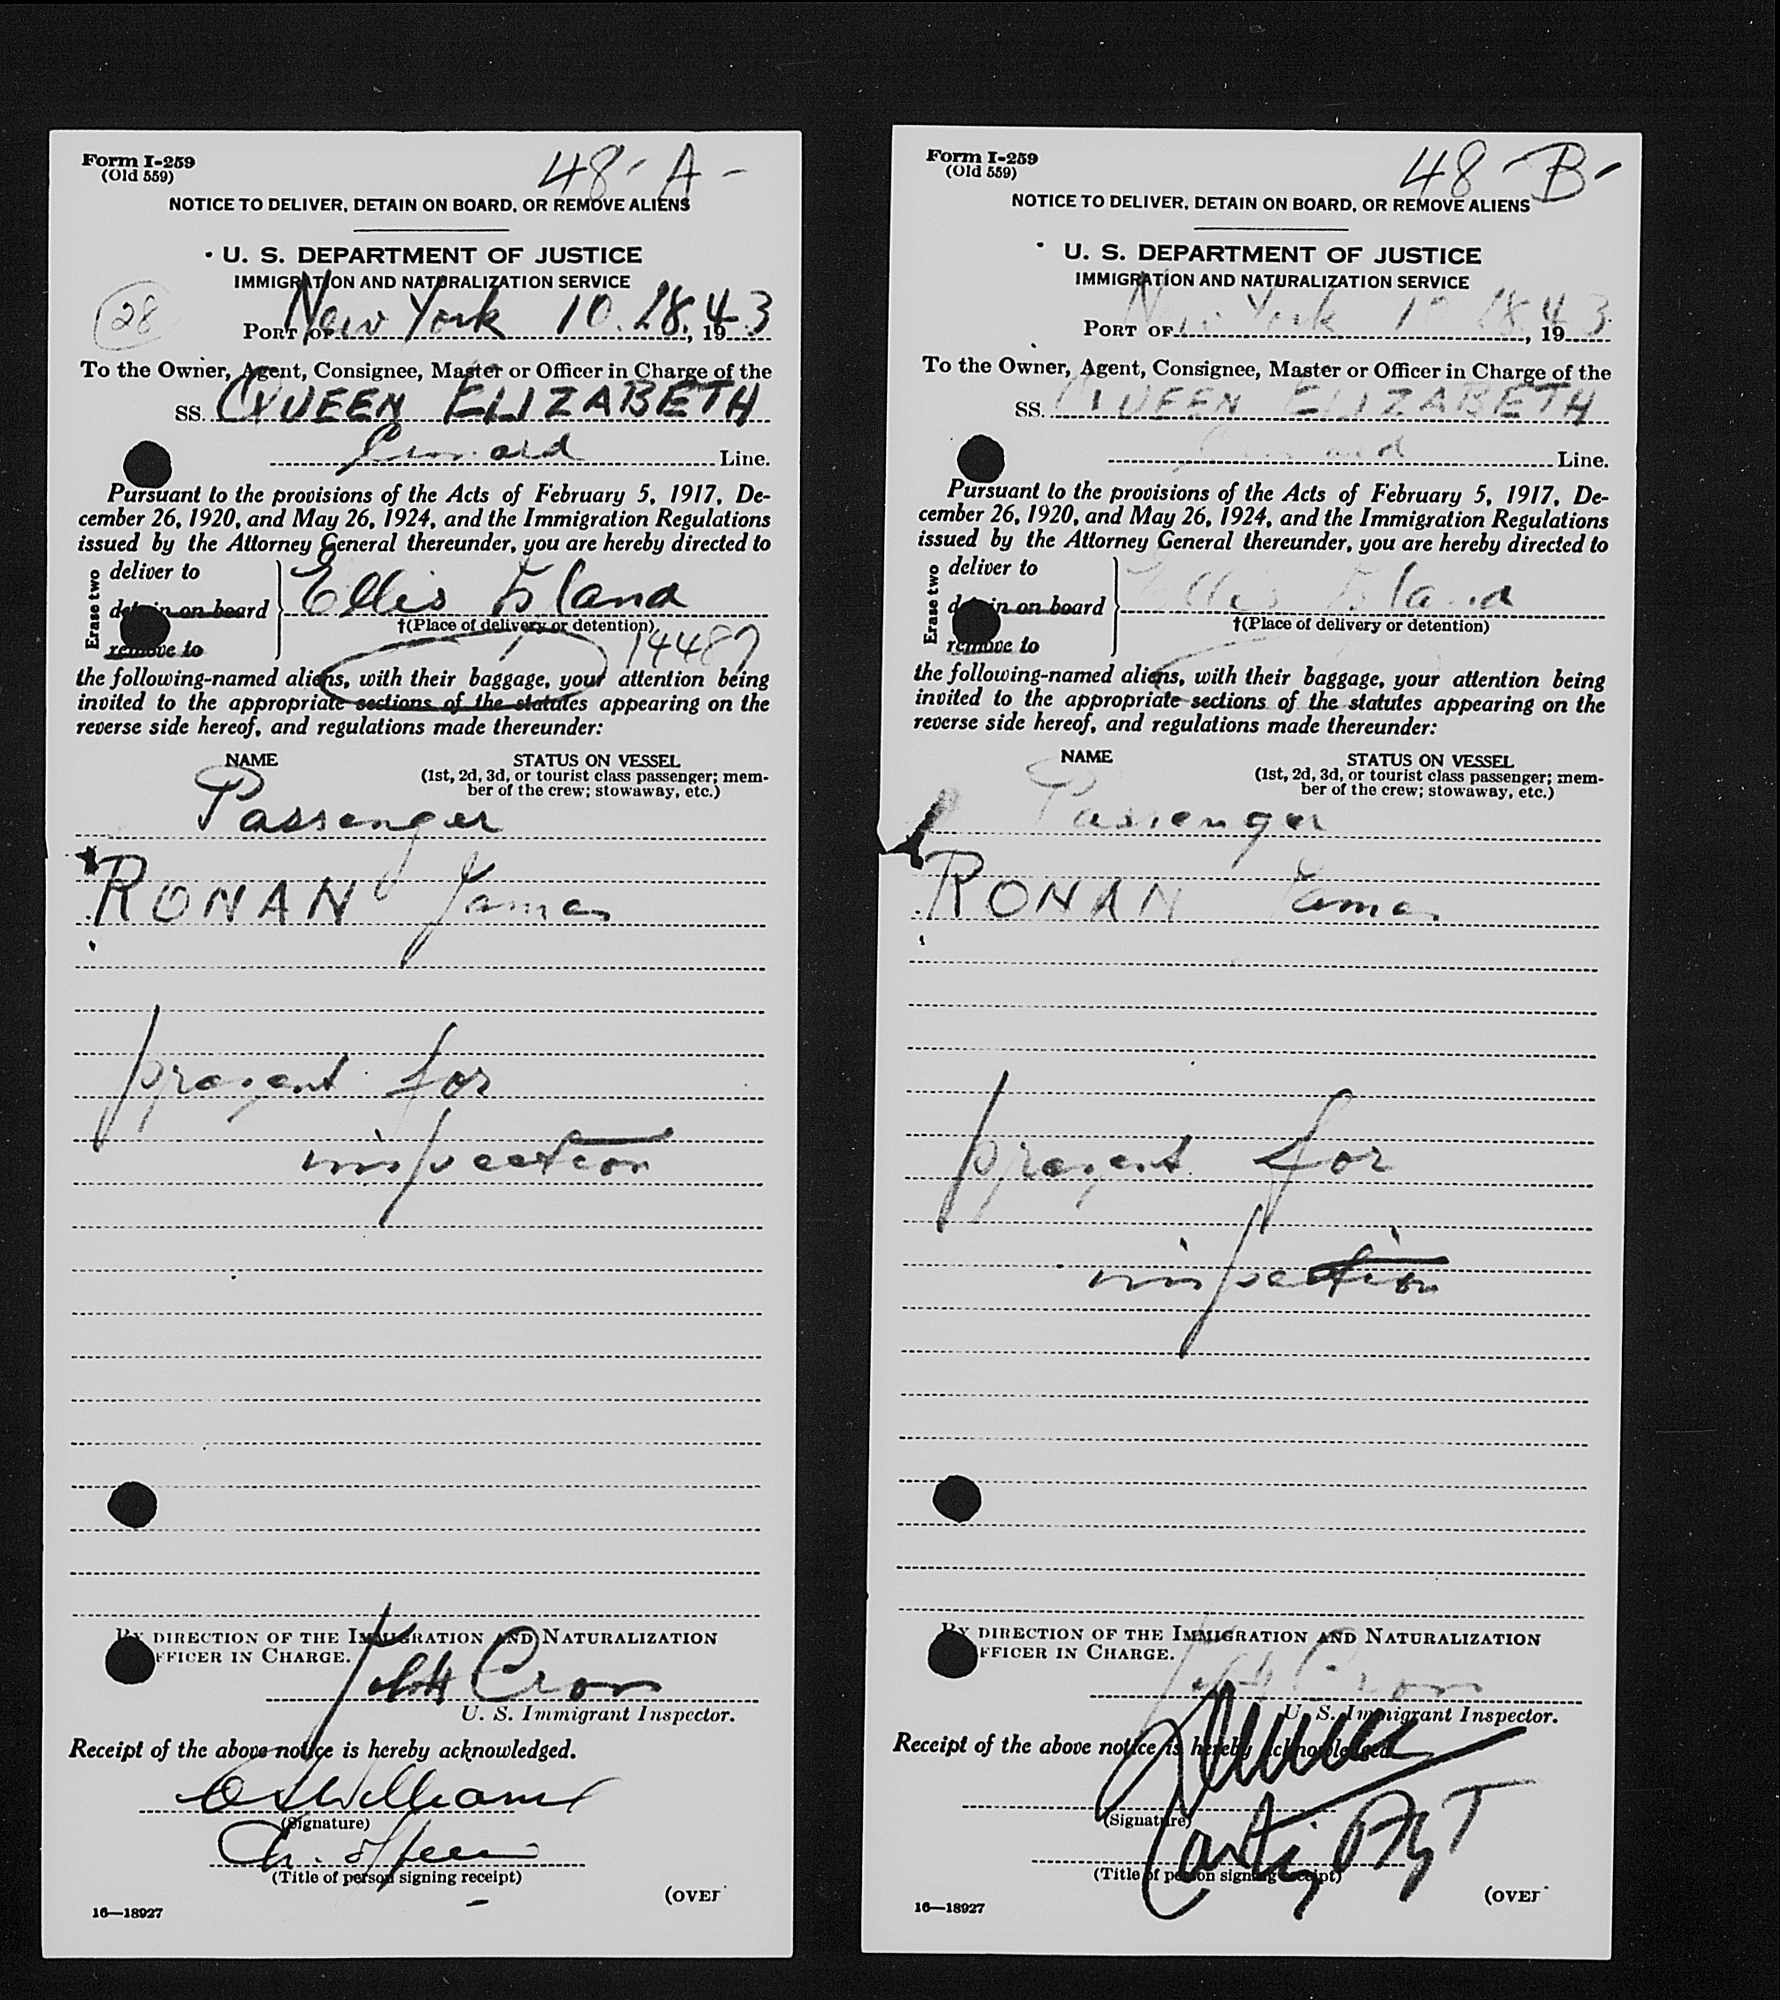 Form I-259
(Old 559)
48-A-
NOTICE TO DELIVER, DETAIN ON BOARD, OR REMOVE ALIENS
U. S. DEPARTMENT OF JUSTICE
IMMIGRATION AND NATURALIZATION SERVICE
28
PORT OF New York 10.28, 1943
To the Owner, Agent, Consignee, Master or Officer in Charge of the
SS. QUEEN ELIZABETH
Cunard Line.
Pursuant to the provisions of the Acts of February 5, 1917, De-
cember 26, 1920, and May 26, 1924, and the Immigration Regulations
issued by the Attorney General thereunder, you are hereby directed to
Erase two
deliver to
detain on board
remove to
Ellis Island
†(Place of delivery or detention)
14487
the following-named aliens, with their baggage, your attention being
invited to the appropriate sections of the statutes appearing on the
reverse side hereof, and regulations made thereunder:
NAME STATUS ON VESSEL
(1st, 2d, 3d, or tourist class passenger; mem-
ber of the crew; stowaway, etc.)
Passenger
RONAN James
present for
inspection
BY DIRECTION OF THE IMMIGRATION AND NATURALIZATION
OFFICER IN CHARGE.
U. S. Immigrant Inspector.
Receipt of the above notice is hereby acknowledged.
Williams
(Signature)
(Title of person signing receipt)
(OVER
16—18927
Form I-259
(Old 559)
48-B-
NOTICE TO DELIVER, DETAIN ON BOARD, OR REMOVE ALIENS
U. S. DEPARTMENT OF JUSTICE
IMMIGRATION AND NATURALIZATION SERVICE
PORT OF New York 10 28, 1943
To the Owner, Agent, Consignee, Master or Officer in Charge of the
SS. QUEEN ELIZABETH
Cunard Line.
Pursuant to the provisions of the Acts of February 5, 1917, De-
cember 26, 1920, and May 26, 1924, and the Immigration Regulations
issued by the Attorney General thereunder, you are hereby directed to
Erase two
deliver to
detain on board
remove to
Ellis Island
†(Place of delivery or detention)
the following-named aliens, with their baggage, your attention being
invited to the appropriate sections of the statutes appearing on the
reverse side hereof, and regulations made thereunder:
NAME STATUS ON VESSEL
(1st, 2d, 3d, or tourist class passenger; mem-
ber of the crew; stowaway, etc.)
Passenger
RONAN James
present for
inspection
BY DIRECTION OF THE IMMIGRATION AND NATURALIZATION
OFFICER IN CHARGE.
U. S. Immigrant Inspector.
Receipt of the above notice is hereby acknowledged.
(Signature)
(Title of person signing receipt)
(OVER
16—18927